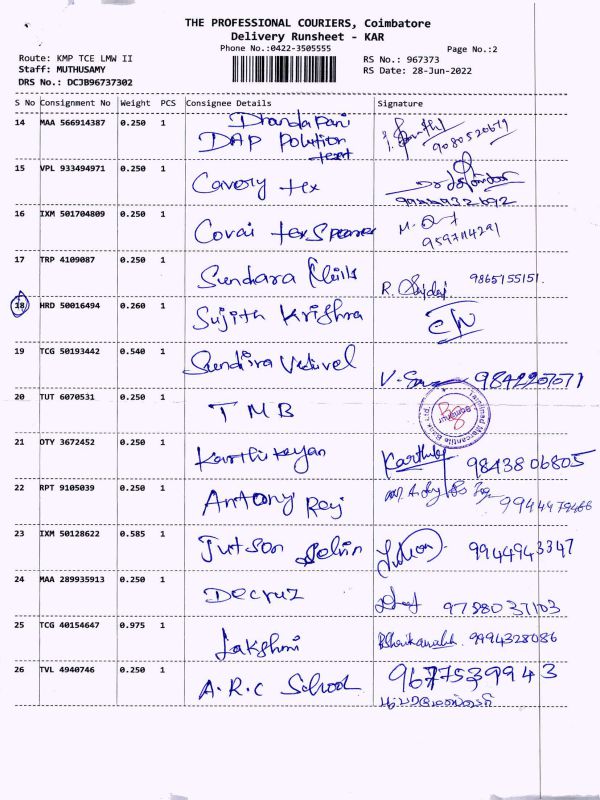 THE PROFESSIONAL COURIERS, Coimbatore
Delivery Runsheet - KAR
Phone No.:0422-3505555 Page No.:2
Route: KMP TCE LMW II RS No.: 967373
Staff: MUTHUSAMY RS Date: 28-Jun-2022
DRS No.: DCJB96737302
S No Consignment No Weight PCS Consignee Details Signature
14 MAA 566914387 0.250 1 Dhandapani
DAP Polution
test
9080520671
15 VPL 933494971 0.250 1 Cavery tex
16 IXM 501704809 0.250 1 Covai tex Spener
9597114291
17 TRP 4109087 0.250 1 Sundara Mills R. 9865155151.
18 HRD 50016494 0.260 1 Sujith Krishna
19 TCG 50193442 0.540 1 Sundira Vadivel 9842207071
20 TUT 6070531 0.250 1 TMB
Tamilnad Mercantile Bank Ltd.
21 DTY 3672452 0.250 1 Karthikeyan 9843806805
22 RPT 9105039 0.250 1 Antony Raj 9944479466
23 IXM 50128622 0.585 1 Jutson Selvin 9944943347
24 MAA 289935913 0.250 1 Decruz 9798037103
25 TCG 40154647 0.975 1 Lakshmi 9994328086
26 TVL 4940746 0.250 1 A.R.C School 9677539943